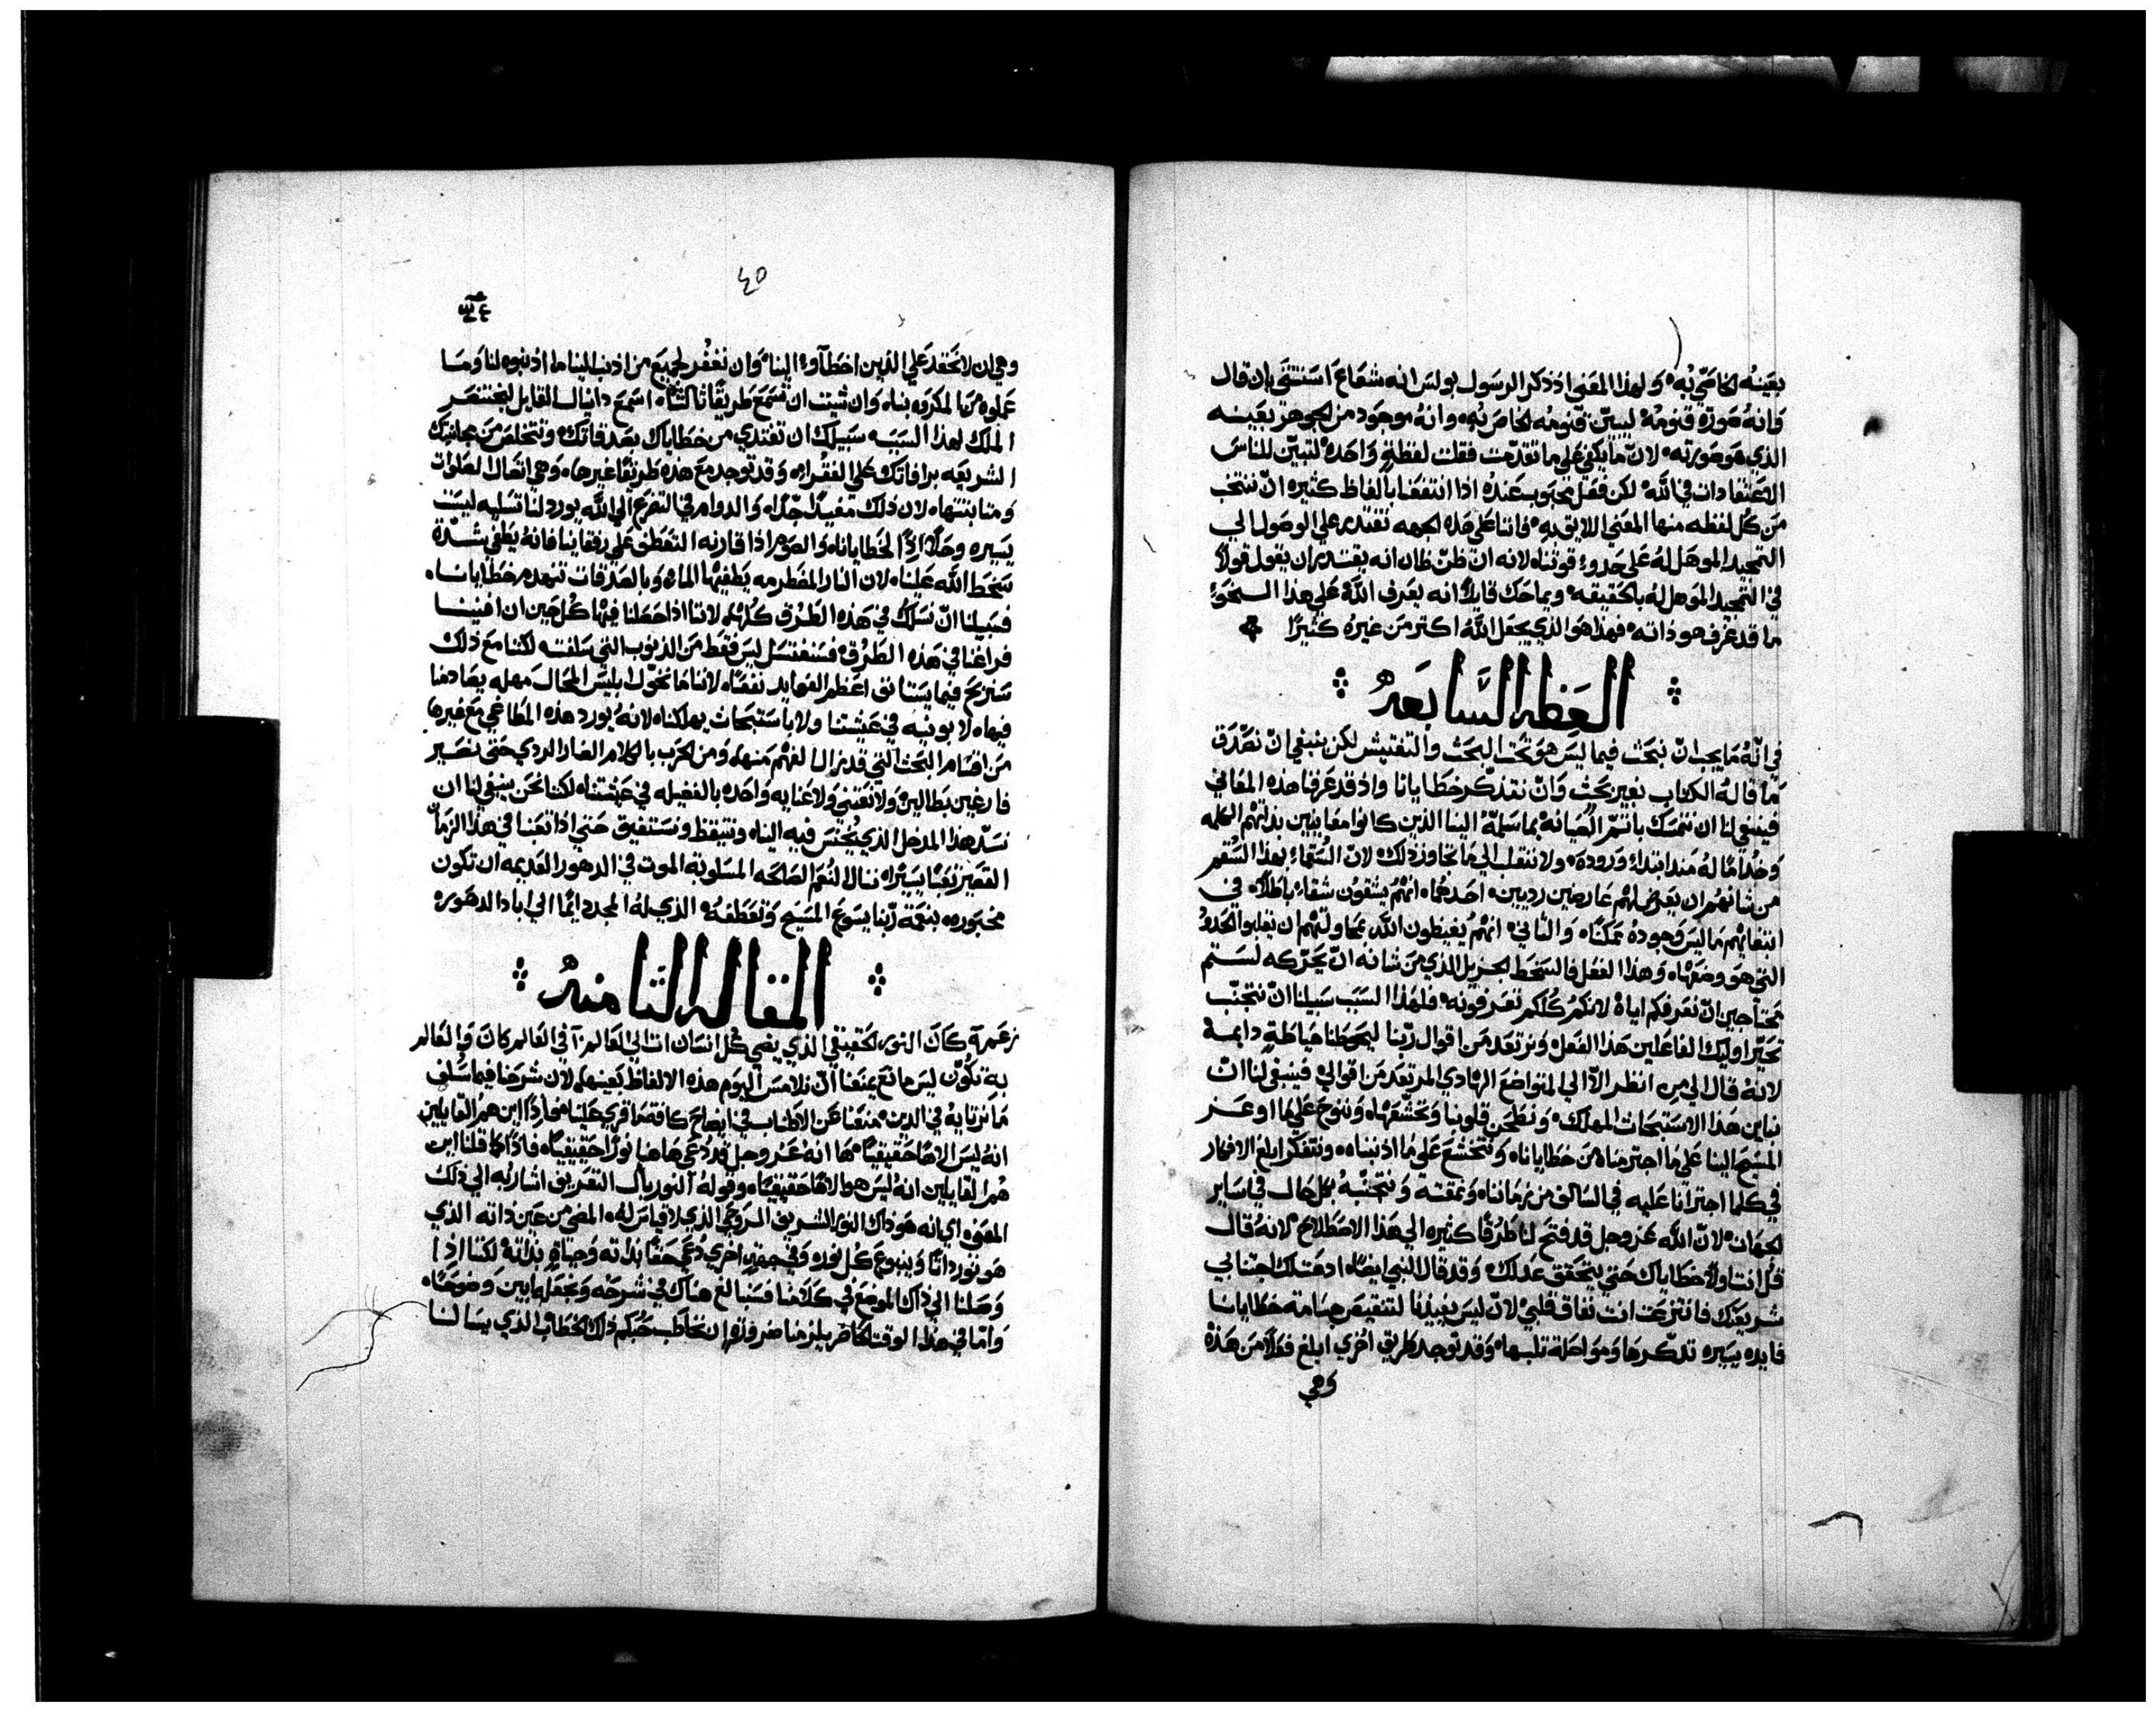 بعينه الخاصي به ولهذا المعنى اذ ذكر الرسول بولس انه شعاع استثنى بان قال
وانه صورة قنومه ليبين قنومه الخاص به وانه موجود من الجوهر بعينه
الذي هو صورته لان ما يكفي على ما تقدمت فقلت لفظة واحده لتبين للناس
الاعتقادات في الله لكن فعل محبوب عنده اذا انتفعنا بالفاظ كثيره ان ننتخب
من كل لفظه منها المعنى اللايق به فاننا على هذه الجهه نقتدر على الوصول الى
التمجيد الموهل له على حدو قوتنا لانه ان ظن ظان انه يقتدر ان يقول قولا
في التمجيد الموهل له بالحقيقه ويماحك قايلا انه يعرف الله على هذا النحو
ما قد عرف هو ذاته فهذا هو الذي يجعل الله اكتر من غيره كثيرا
العظه السابعه
في انه ما يجب ان نبحث فيما ليس هو تحت البحث والتفتيش لكن ينبغي ان نصدق
ما قاله الكتاب بغير بحث وان نتذكر خطايانا واذ قد عرفنا هذه المعاني
فينبغي لنا ان نتمسك باتم الصيانه بما سلمه الينا الذين كانوا معاينين بذاتهم الكلمه
وخداما له منذ ابتداء وروده ولا ننتقل الى ما تجاوز ذلك لان السقماء بهذا السقم
من شانهم ان يعرض لهم عارضين رديين احدهما انهم يشقون شقاء باطلا في
ابتغايهم ما ليس وجوده ممكنا والثاني انهم يغيظون الله بمحاولتهم ان يقلبوا الحدود
التي هو وضعها وهذا الفعل فالسخط الجزيل الذي من شانه ان يحركه لستم
محتاجين ان نعرفكم اياه لانكم كلكم تعرفونه فلهذا السبب سبيلنا ان نتجنب
تحير اوليك الفاعلين هذا الفعل ونرتعد من اقوال ربنا ليحوطنا حياطة دايمة
لانه قال الى من انظر الا الى المتواضع الهادي المرتعد من اقوالي فينبغي لنا ان
نباين هذا الاستبحاث المهلك ونطحن قلوبنا ونخشعها وننوح على ما اوعز
المسيح الينا على ما اجترمناه من خطايانا ونتخشع على ما اذنبناه ونتفكر ابلغ الافهام
في كلما اجترانا عليه في السالف من زماننا ونمقته ونتجنبه بكل حال في ساير
الجهات لان الله عز وجل قد فتح لنا طرقا كثيره الى هذا الاصطلاح لانه قال
قل انت اولا خطاياك حتى يتحقق عدلك وقد قال النبي ايضا ادعت لك اجتنابي
شريعتك فانتزعت انت نفاق قلبي لان ليس يفيدنا لتنقيص جسامة خطايانا
فايده يسيره تذكرها ومواصلة ثلبها وقد توجد طريق اخرى ابلغ فعلا من هذه
وهي
٤٥
وهي ان لا نحقد على الذين اخطاوا الينا وان نغفر لجميع من اذنب الينا ما اذنبوه لنا وما
عملوه من المكروه بنا وان شيت ان تسمع طريقا ثالثا اسمع دانيال القايل لبختنصر
الملك لهذا السبب سبيلك ان تفتدي من خطاياك بصدقاتك وتتخلص من مجانبتك
الشريعه برافاتك على الفقراء وقد توجد مع هذه طريقا غيرها وهي اتصال الصلوات
ومثابتتها لان ذلك مفيدا جدا والدوام في التضرع الى الله يورد لنا تسليه ليست
يسيره وحلا اذا لخطايانا والصوم اذا قارنه التعطف على رفقاينا فانه يطفي شدة
سخط الله علينا لان النار المضطرمه يطفيها الماء وبالصدقات تنهدم خطايانا
فسبيلنا ان نسلك في هذه الطرق كلها لاننا اذا حصلنا فيها كل حين ان افنينا
فراغنا في هذه الطرق فسنغتسل ليس فقط من الذنوب التي سلفت لكننا مع ذلك
سنربح فيما يستانف اعظم الفوايد نفعا لاننا ما نخول ابليس المحال مهله يصادفنا
فيها لا بونيه في عيشتنا ولا باستبحاث يهلكنا لانه يورد هذه المطاغي مع غيرها
من اقسام البحث التي قد تزال الفهم منها ومن الحرب بالكلام الضار الردي حتى نصير
فارغين بطالين ولا نقتني ولا عنايه واحده بالفضيله في عيشتنا لكنا نحن ينبغي لنا ان
نسد هذا المدخل الذي يختس فيه الينا ونتيقظ ونستفيق حتى اذا تعبنا في هذا الزمان
القصير تعبا يسيرا ننال النعم الصالحه المسلوبة الموت في الدهور العديمه ان تكون
محبوره بنعمة ربنا يسوع المسيح وتعطفه الذي له المجد دايما الى اباد الدهور
المقاله الثامنه
كان النور الحقيقي الذي يضي كل انسان ات الى العالم في العالم كان والعالم
به تكون ليس مانع يمنعنا ان نلامس اليوم هذه الالفاظ بعينها لان شرحنا فيما سلف
ما نرتايه في الدين منعنا عن الاطناب في ايضاح كافة ما قري علينا فاين هم القايلين
انه ليس الاها حقيقيا ها انه عز وجل قد دعي هاهنا نورا حقيقيا فاذا كما قلنا اين
هم القايلين انه ليس هو الاها حقيقيا وقوله النور بالف التعريف اشار به الى ذلك
المعنى اي انه هو ذاك النور الشريف الروحي الذي لا قياس له المضي من عين ذاته الذي
هو نور ذاتا وينبوع كل نور وفي جهة اخرى دعي حقا بذاته وحياة بذاته لكننا اذا
وصلنا الى ذاك الموضع في كلامنا فسنبالغ هناك في شرحه ونجعله ابين وضوحا
واما في هذا الوقت الحاضر يلزمنا ضرورة ان نخاطب حبكم ذلك الخطاب الذي يسالنا